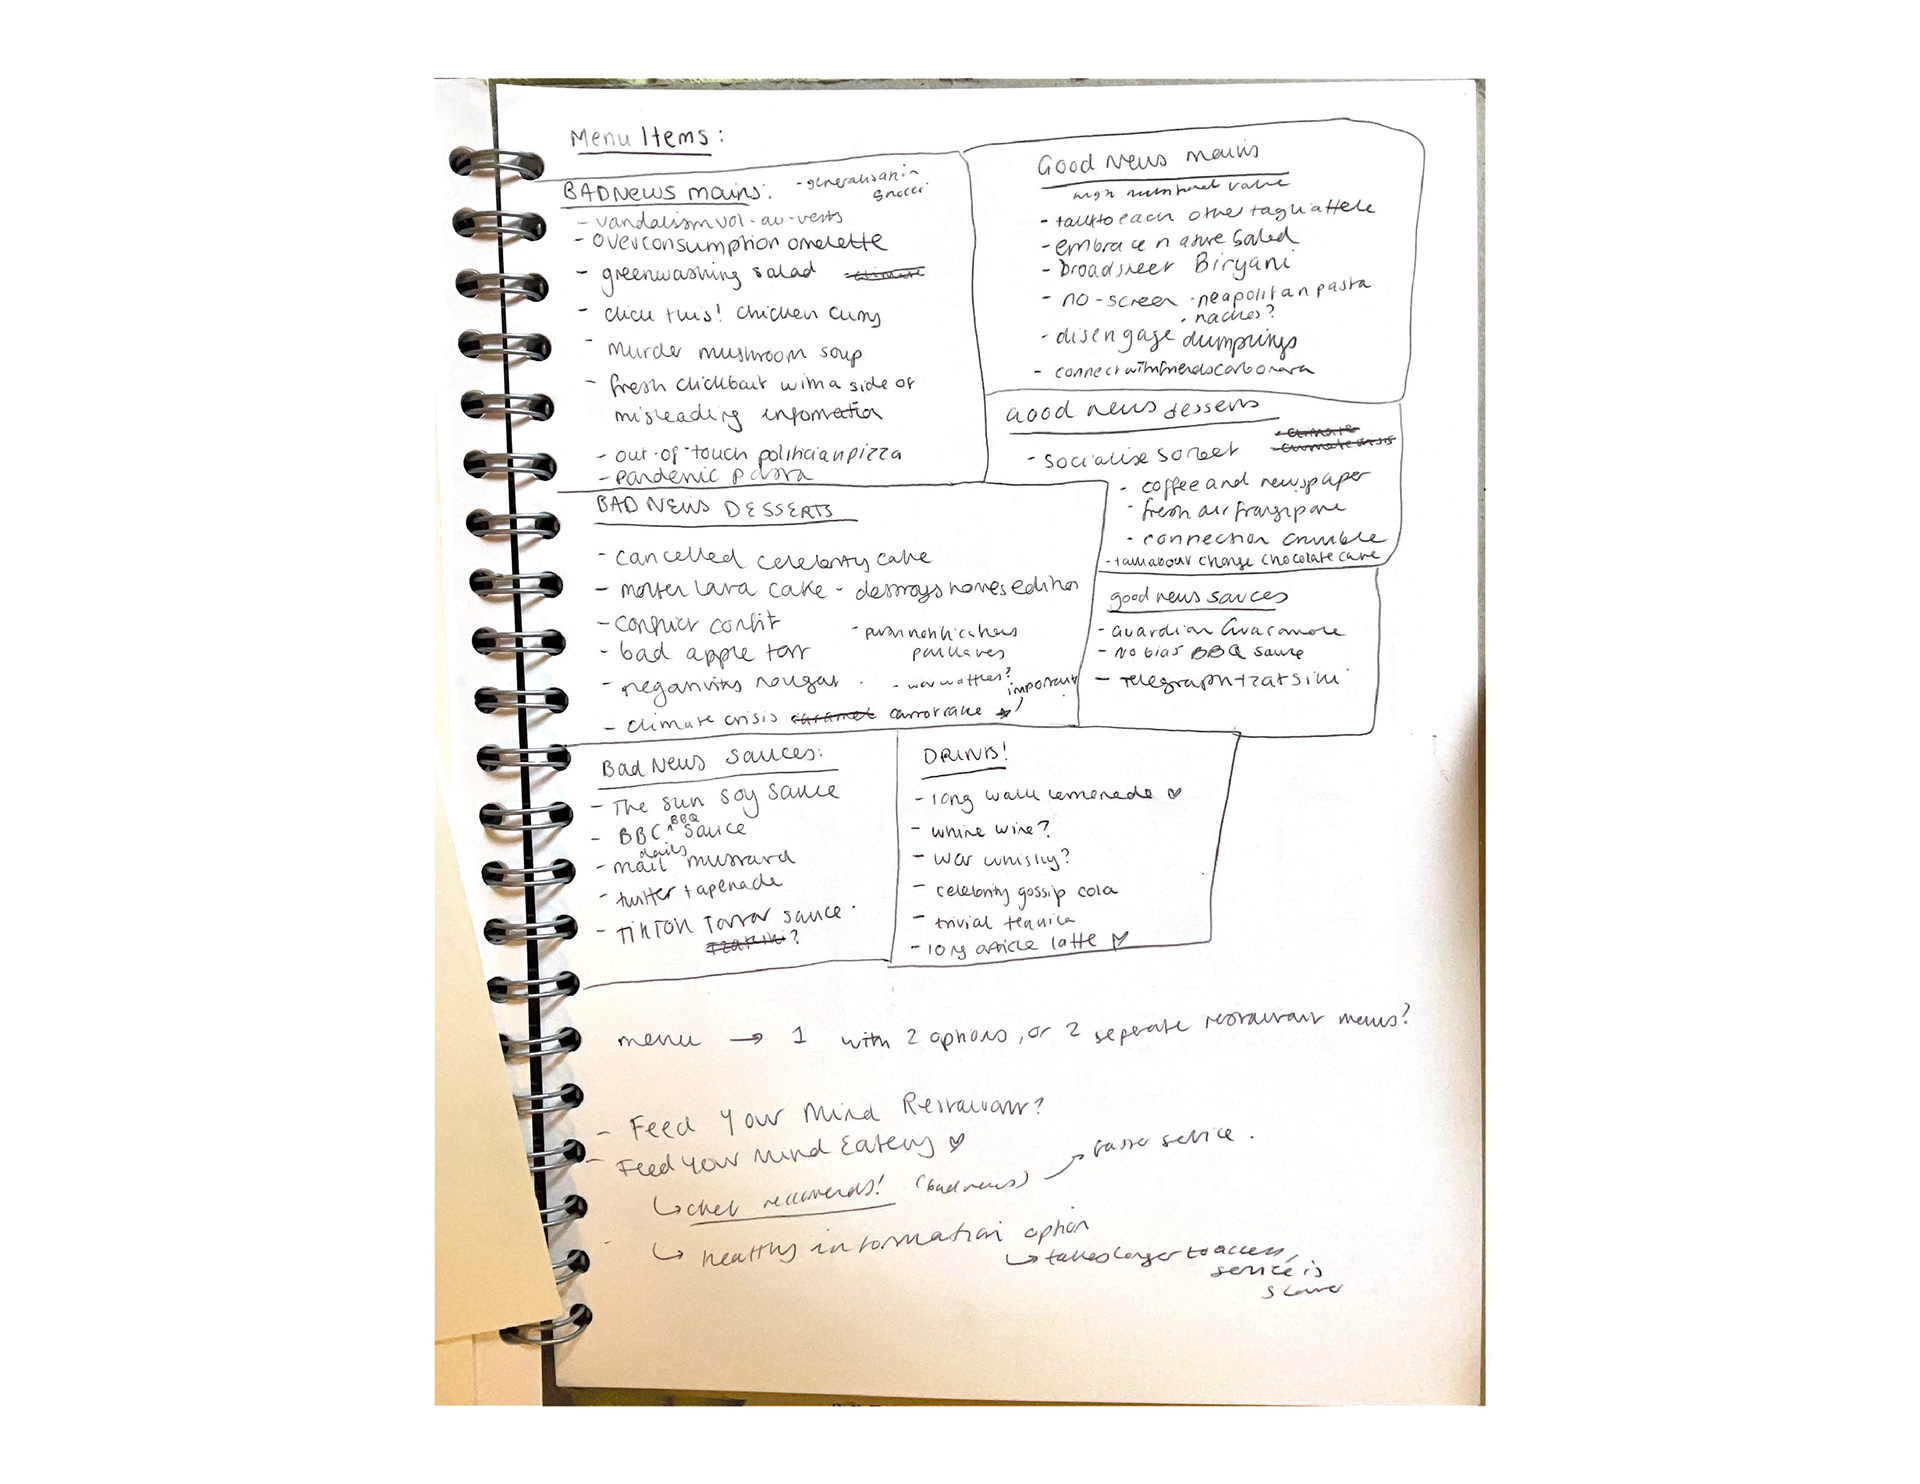 Menu Items:
BAD NEWS mains:
- generalisation
gnocci
- vandalism vol-au-vents
- overconsumption omelette
- greenwashing salad climate
- click this! chicken curry
- murder mushroom soup
- fresh clickbait with a side of
misleading information
- out-of-touch politician pizza
- pandemic pasta
Good News mains
high nutritional value
- talk to each other tagliattele
- embrace nature salad
- broadsheet Biryani
- no-screen - neapolitan pasta
- nachos?
- disengage dumplings
- connect with friends carbonara
Good news desserts
- climate
- climate crisis
- socialise sorbet
- coffee and newspaper
- fresh air frangipane
- connection crumble
- talk about change chocolate cake
BAD NEWS DESSERTS
- cancelled celebrity cake
- molten lava cake - destroys homes edition
- conflict confit
- bad apple tart
- negativity nougat
- push notifications
pavlovas
- war waffles?
- climate crisis caramel carrot cake
important
good news sauces
- Guardian Guacamole
- No bias BBQ sauce
- Telegraph tzatsiki
Bad News Sauces:
- The Sun Soy Sauce
- BBC BBQ Sauce
- daily mail mustard
- twitter tapenade
- TikTok Tartar sauce
Tzatziki?
DRINKS!
- long walk lemonade ♡
- whine wine?
- war whisky?
- celebrity gossip cola
- trivial tequila
- long article latte ♡
menu → 1 with 2 options, or 2 seperate restaurant menus?
- Feed Your Mind Restaurant?
- Feed Your Mind Eatery ♡
↳ chef reccomends! (bad news) → faster service.
↳ healthy information option
↳ takes longer to access,
service is
slower